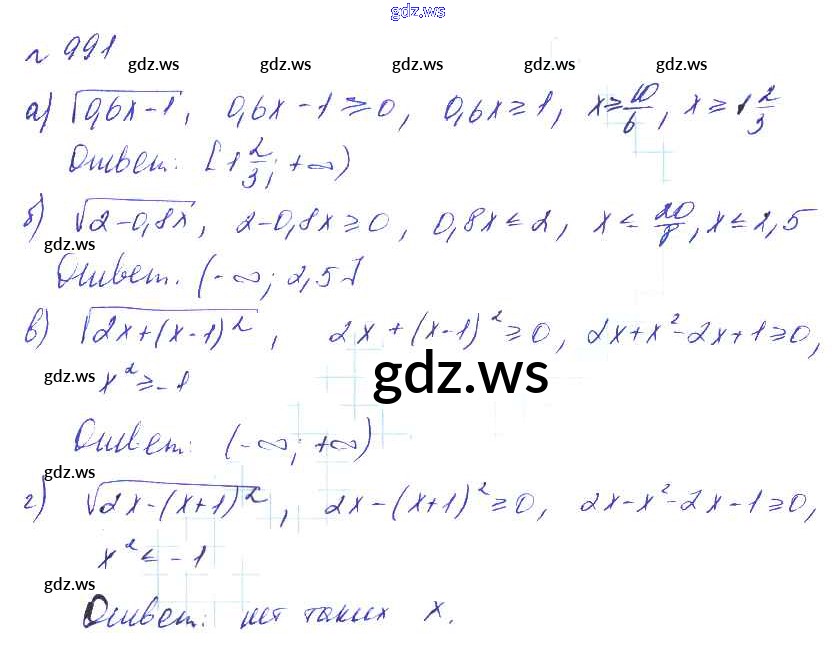 gdz.ws
№ 991
gdz.ws gdz.ws gdz.ws gdz.ws
а) √(0,6x-1), 0,6x-1≥0, 0,6x≥1, x≥10/6, x≥1 2/3
Ответ: [1 2/3; +∞)
б) √(2-0,8x), 2-0,8x≥0, 0,8x≤2, x≤20/8, x≤2,5
gdz.ws
Ответ. (-∞; 2,5]
в) √(2x+(x-1)²), 2x+(x-1)²≥0, 2x+x²-2x+1≥0,
gdz.ws x²≥-1 gdz.ws
Ответ: (-∞; +∞)
gdz.ws
г) √(2x-(x+1)²), 2x-(x+1)²≥0, 2x-x²-2x-1≥0,
x²≤-1
gdz.ws
Ответ: нет таких x.